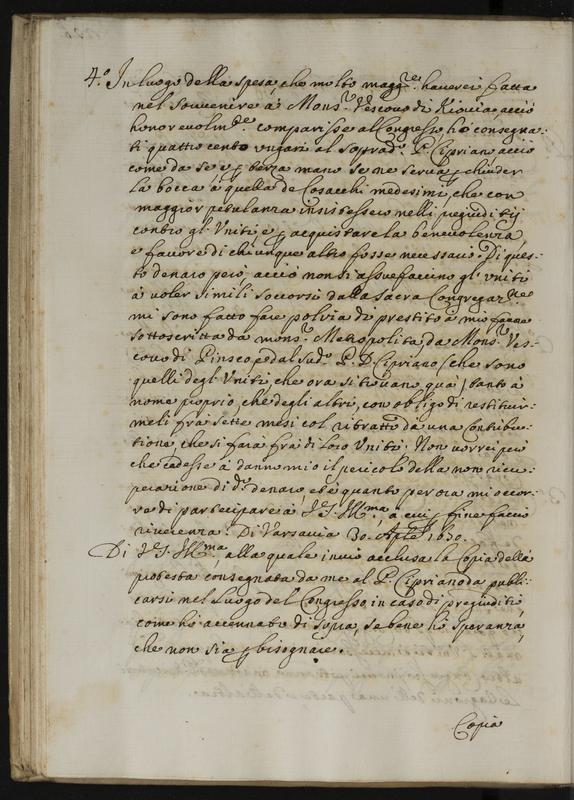 4.º In luogo della spesa, che molto magg.re haverei fatta
nel souvenire à Mons.r Vescovo di Kiovia, acciò
honorevolm.te comparisse al Congresso, hò consegna:
ti quattro cento ungari al soprad.º P. Cipriano, acciò
come da se, e p terza mano se ne serva p chiuder
la bocca à quella de Cosacchi medesimi, che con
maggior petulanza insistessero nelli pregiuditij
contro gl' Uniti, e p acquistare la benevolenza,
e favore di chiunque altro fosse necessario. Di ques-
to denaro però, acciò non si assuefaccino gl' uniti
à voler simili soccorsi dalla Sacra Congregaz.ne
mi sono fatto fare polizza di prestito à mio favore
sottoscritta da mons.r Metropolita, da Mons.r Ves-
covo di Pinsco, e dal sud.º P. D. Cipriano (che sono
quelli degl' Uniti, che ora si trovano quà) tanto à
nome proprio, che degli altri, con obligo di restituir-
meli frà sette mesi col ritratto dà una contribu-
tione, che si farà frà di loro Uniti; Non vorrei però
che cadesse à danno mio il pericolo della non ricu-
perazione di d.º denaro, et è quanto per ora mi occor-
re di partecipare à V.S. Ill.ma, a cui p fine faccio
riverenza. Di Varsavia 30. Aple 1680.
Di V.S. Ill.ma, alla quale invio acclusa la Copia della
protesta consegnata da me al P. Cipriano da publi-
carsi nel Luogo del Congresso in caso di pregiuditij
come hò accennato di sopra, se bene hò speranza,
che non sia p bisognare.
Copia